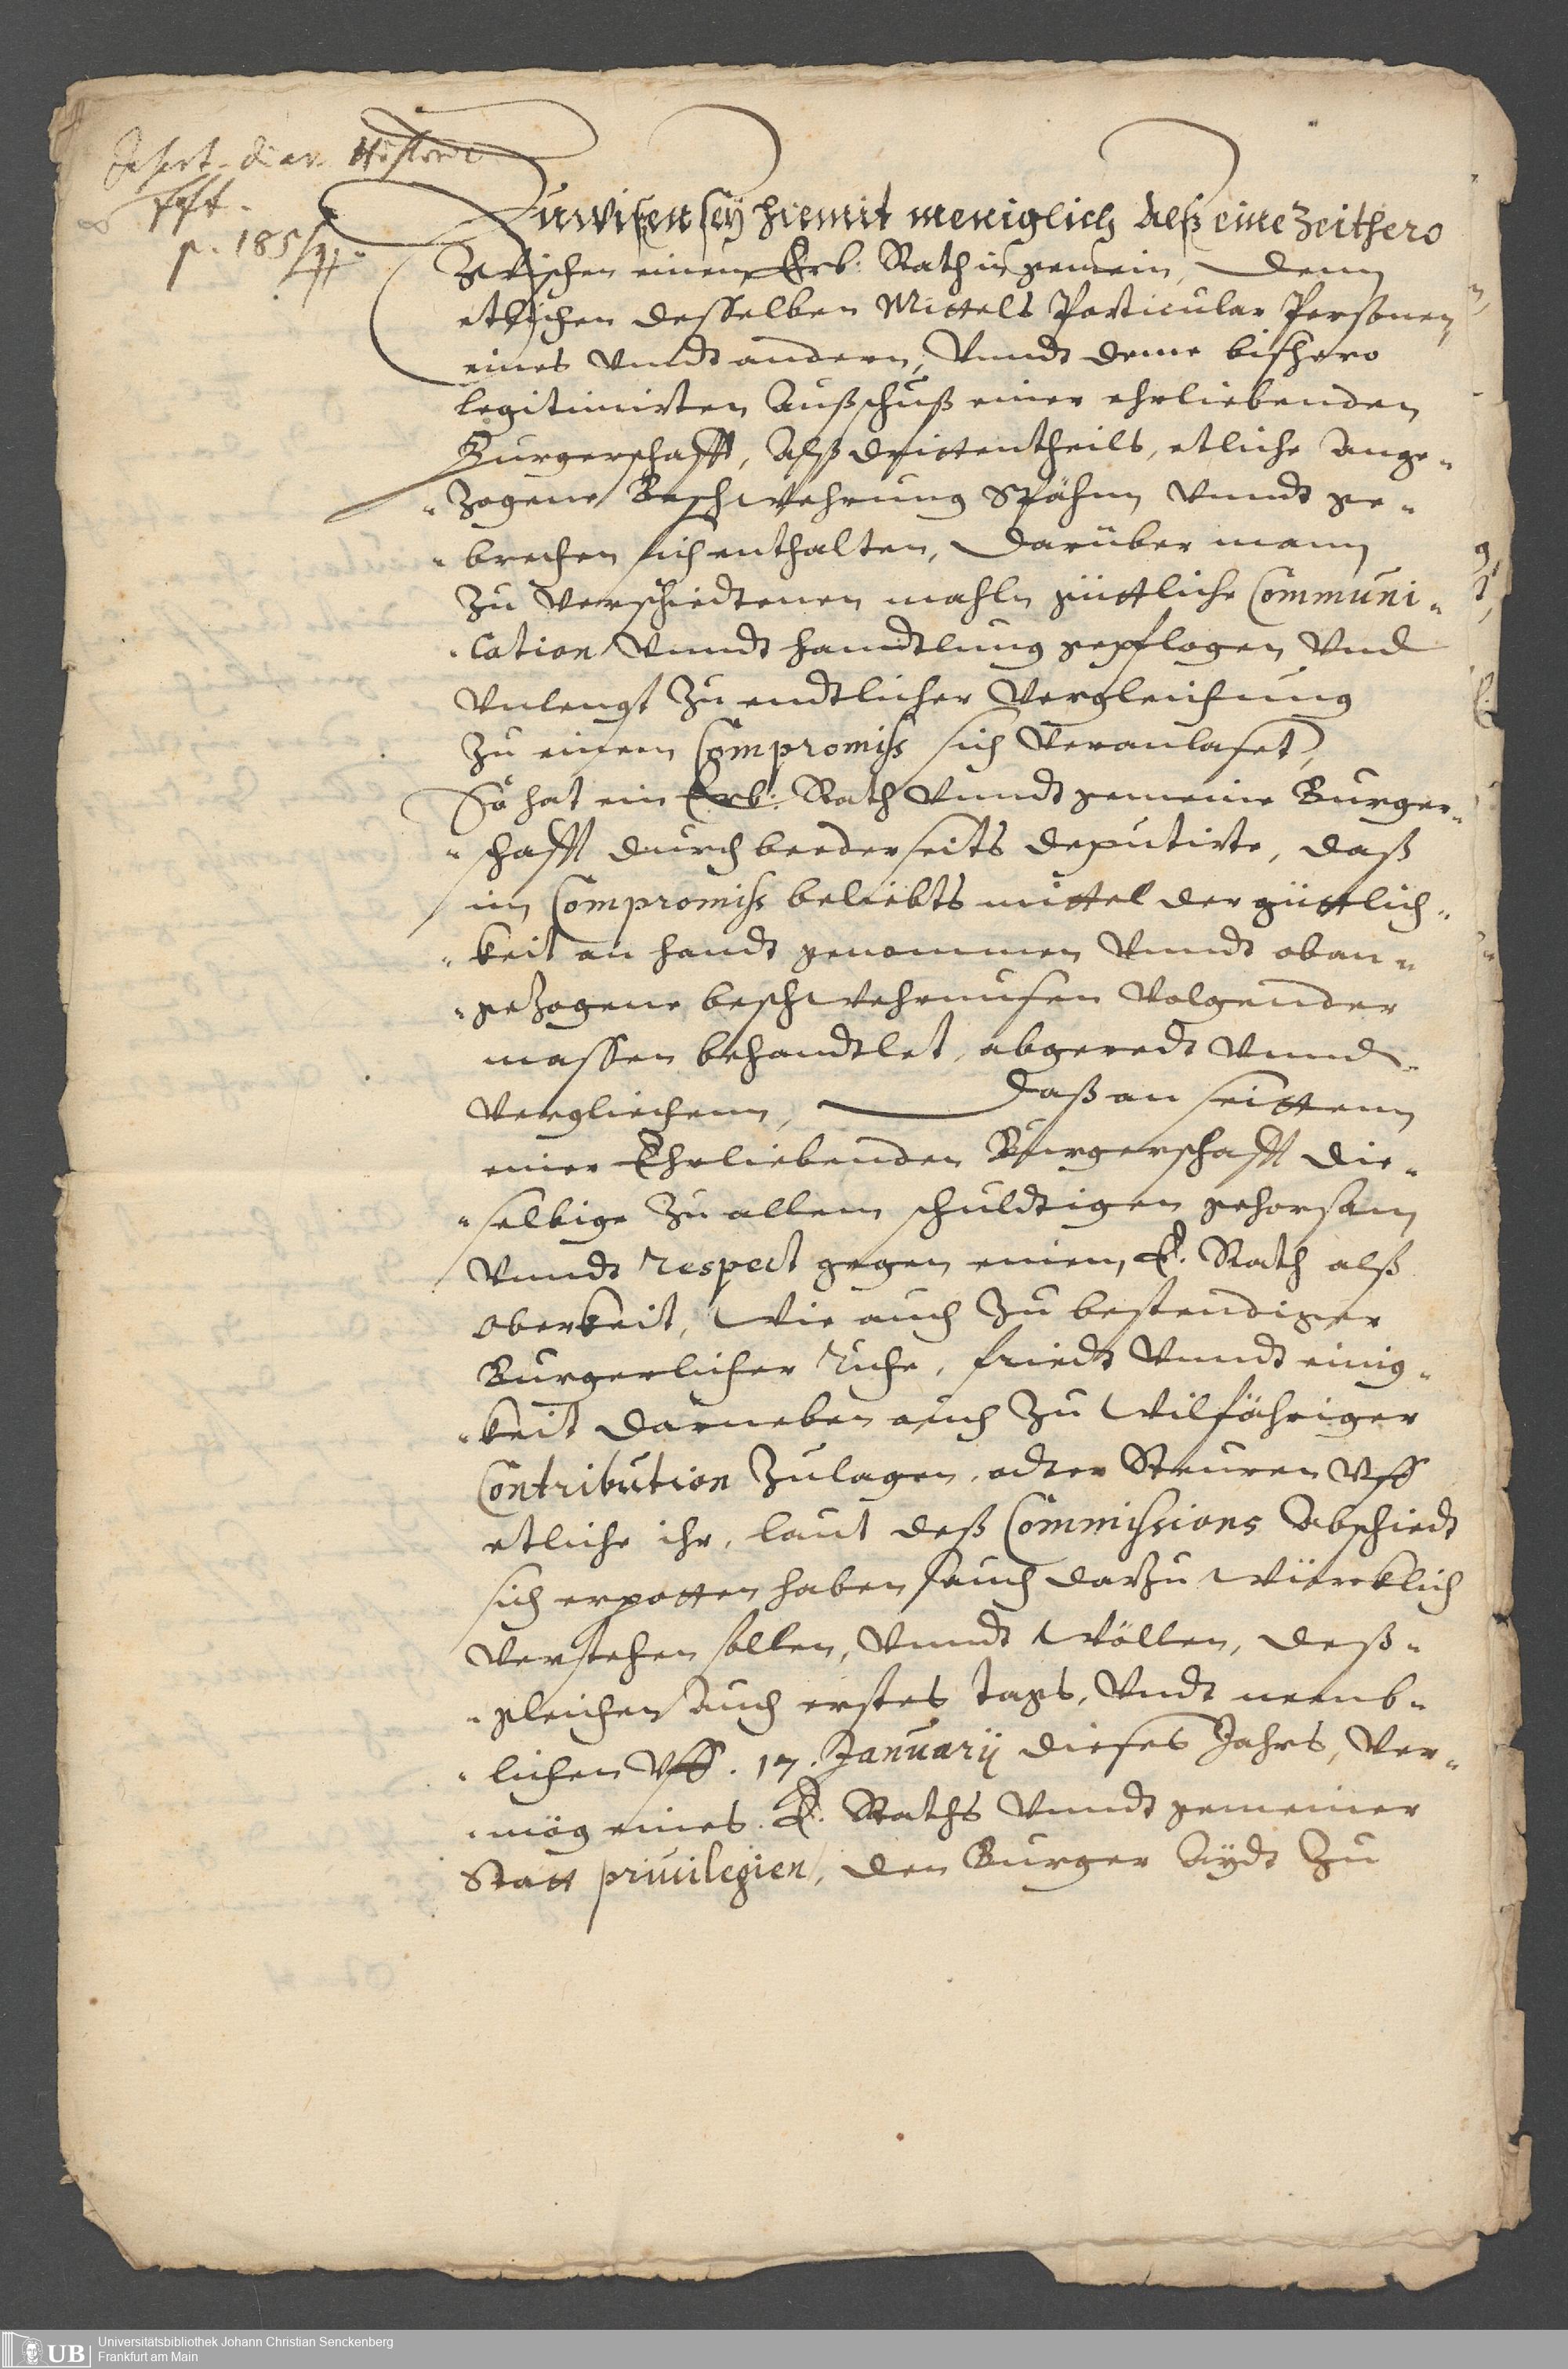 diar. Historic
p. 185
Zuwißen seÿ hiemit meniglich Alß eine Zeithero
Zwischen einem Erb: Rath in gemein, denn
etlichen desselben Mittels Particular Personen
eines Vnndt andern, Vnndt deme bißhero
legitimirten Außschuß einer ehrliebenden
Burgerschafft, Alß drittentheils, etliche Ange„
„zogene Beschwehrung Spähnn Vnndt ge„
„brechen sich enthalten, Darüber mann
Zu Verschiedtenen mahln güettliche Communi„
„cation Vnndt handtlung gepflogen Vnd
Vnlengst Zu endtlicher Vergleichung
Zu einem Compromiss sich Veranlaset,
So hat ein Erb: Rath Vnndt gemeine Burger„
„schafft durch beederseits deputirte, daß
im Compromiss beliebts mittel der güettlich„
„keit an handt genommen Vnndt oban„
„gezogene beschwehrnusen Volgender
massen behandtlet, abgeredt Vnnd
Vergliechenn, Daß an seittenn
einer Ehrliebenden Burgerschafft die„
„selbige Zu allem schuldtigen gehorsam
Vnndt respect gegen einem E. Rath alß
Oberkeit, Wie auch Zu bestendiger
Burgerlicher Ruhe, friedt Vnndt einig„
„keit darneben auch Zu Wilfähriger
Contribution Zulagen, odter Steuren Vff
etliche ihr, laut deß Commissions Abschiedt
sich erpotten haben, auch darzu Wüercklich
Verstehen sollen, Vnndt Wöllen, deß„
„gleichen Auch erstes tags, Vndt nemb„
„lichen Vff. 17. Januarÿ dieses Jahrs, Ver„
„mög eines. E. Raths Vnndt gemeiner
Statt priuilegien, den Burger Aÿdt Zu
UB
Universitätsbibliothek Johann Christian Senckenberg
Frankfurt am Main